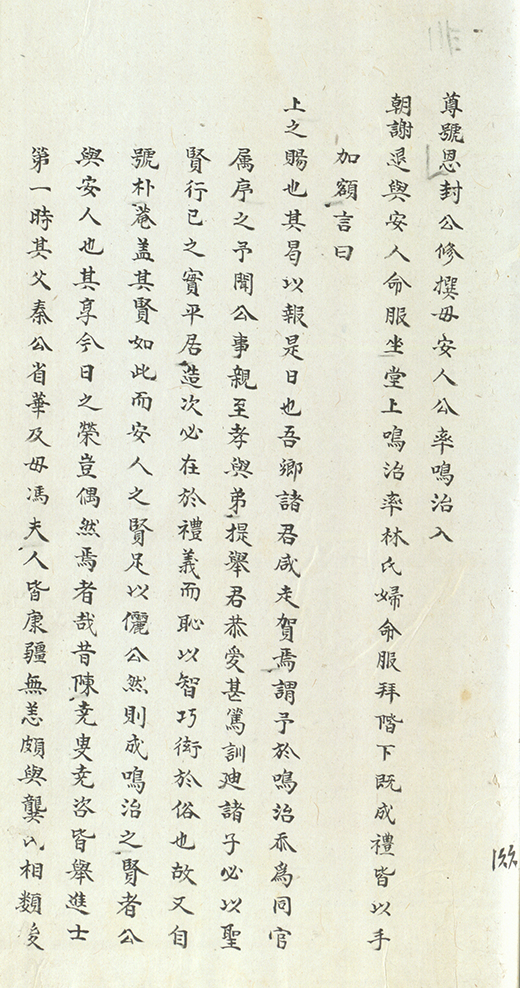 尊號恩封公修撰母安人公率鳴治入
朝謝退與安人命服坐堂上鳴治率林氏婦命服拜階下既成禮皆以手
加額言曰
上之賜也其曷以報是日也吾鄉諸君咸走賀焉謂予於鳴治忝爲同官
属序之予聞公事親至孝與弟提舉君恭愛甚篤訓廸諸子必以聖
賢行已之實平居造次必在於禮義而恥以智巧衒於俗也故又自
號朴菴盖其賢如此而安人之賢足以儷公然則成鳴治之賢者公
與安人也其享今日之榮豈偶然焉者哉昔陳尭叟尭咨皆舉進士
第一時其父秦公省華及母馮夫人皆康彊無恙頗與龔氏相類